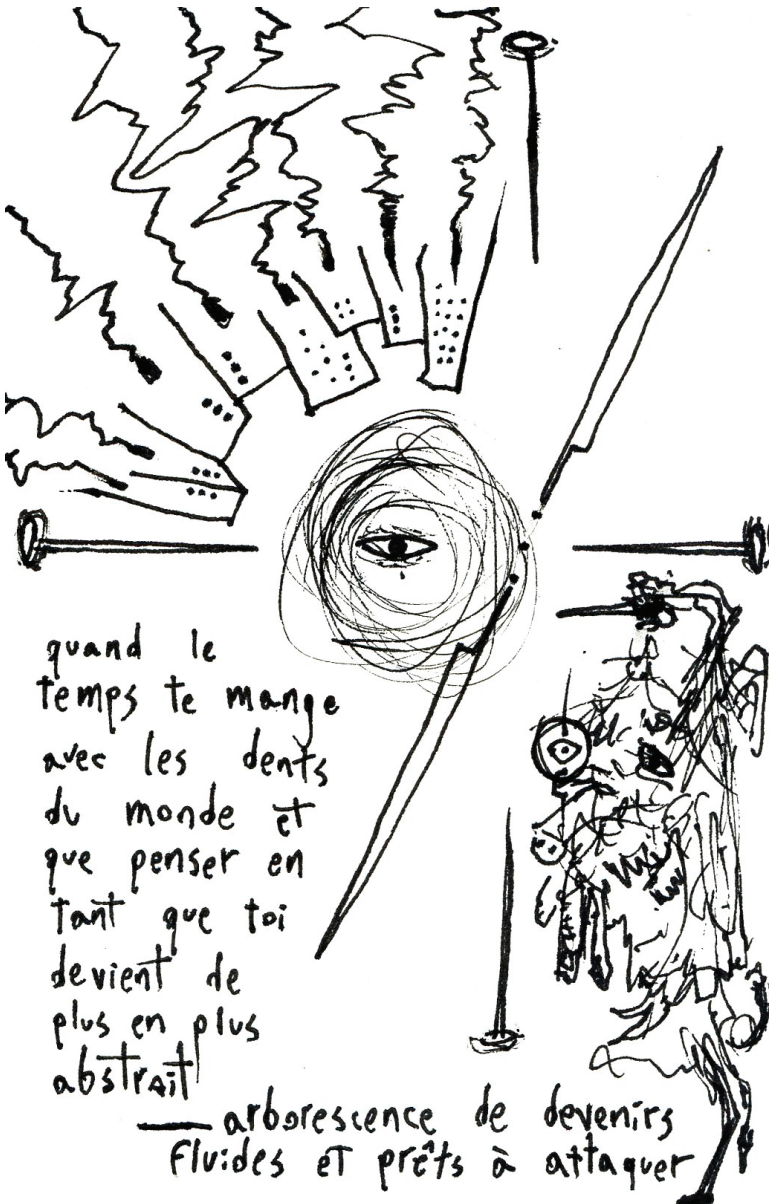 quand le
temps te mange
avec les dents
du monde et
que penser en
tant que toi
devient de
plus en plus
abstrait
— arborescence de devenirs
fluides et prêts à attaquer